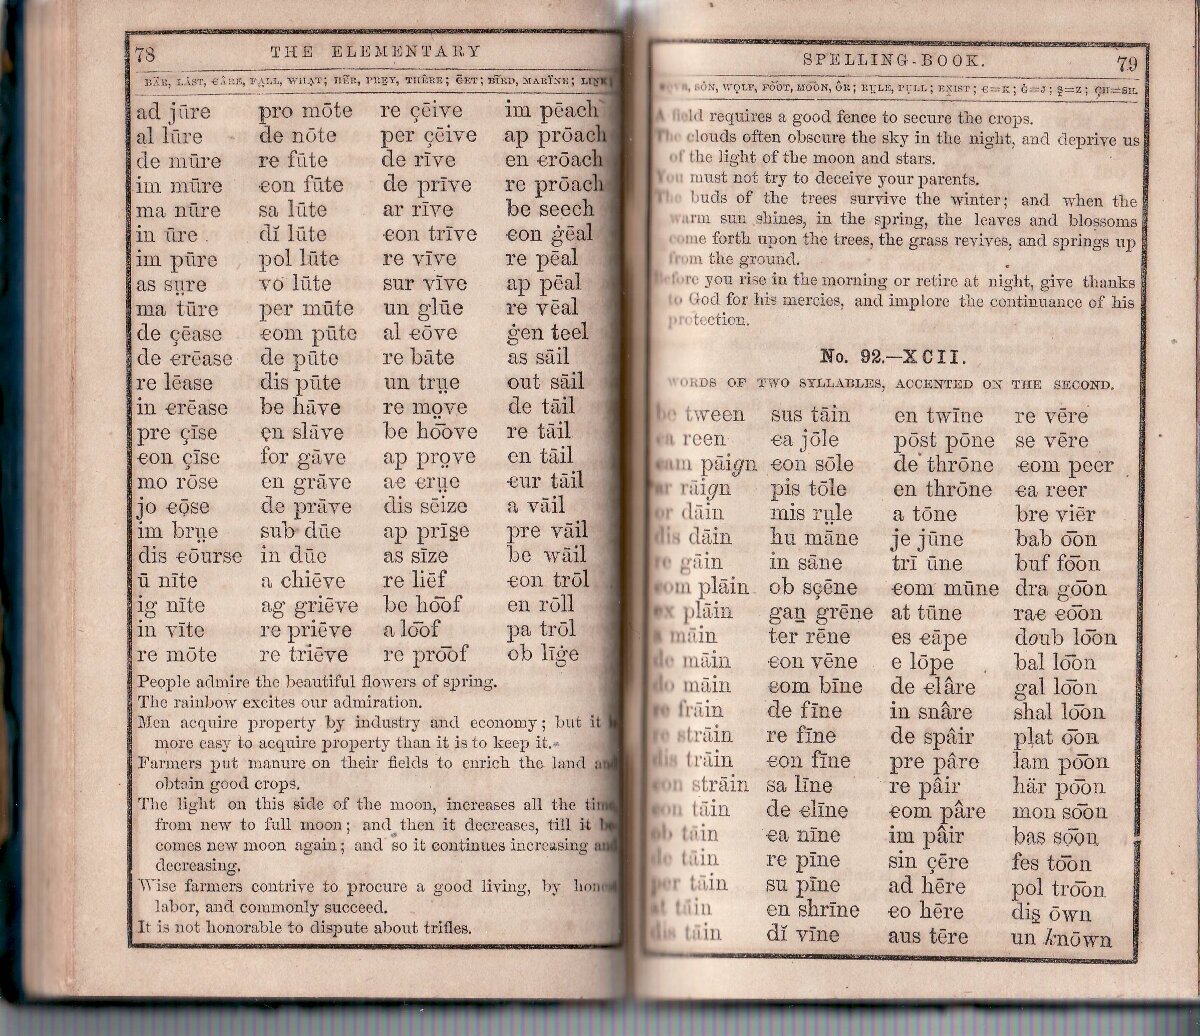 78 THE ELEMENTARY
BÄR, LÅST, ЄÂRE, FALL, WHAT; HẼR, PREY, THÊRE; ĞET; BÏRD, MARÏNE; LINK;
ad jūre pro mōte re çēive im pēach
al lūre de nōte per çēive ap prōach
de mūre re fūte de rīve en єrōach
im mūre єon fūte de prīve re prōach
ma nūre sa lūte ar rīve be seech
in ūre dĭ lūte єon trīve єon ġēal
im pūre pol lūte re vīve re pēal
as sụre vo lūte sur vīve ap pēal
ma tūre per mūte un glūe re vēal
de çēase єom pūte al єōve ġen teel
de єrēase de pūte re bāte as sāil
re lēase dis pūte un trụe out sāil
in єrēase be hāve re mọve de tāil
pre çīse ęn slāve be ho͞ove re tāil
єon çīse for gāve ap prọve en tāil
mo rōse en grāve aє єrụe єur tāil
jo єọ̄se de prāve dis sēize a vāil
im brụe sub dūe ap prīṣe pre vāil
dis єōurse in dūe as sīze be wāil
ū nīte a chiēve re liēf єon trōl
ig nīte ag griēve be ho͞of en rōll
in vīte re priēve a lo͞of pa trōl
re mōte re triēve re pro͞of ob līġe
People admire the beautiful flowers of spring.
The rainbow excites our admiration.
Men acquire property by industry and economy; but it is
more easy to acquire property than it is to keep it.
Farmers put manure on their fields to enrich the land and
obtain good crops.
The light on this side of the moon, increases all the time
from new to full moon; and then it decreases, till it be-
comes new moon again; and so it continues increasing and
decreasing.
Wise farmers contrive to procure a good living, by honest
labor, and commonly succeed.
It is not honorable to dispute about trifles.
SPELLING-BOOK. 79
SÔN, WOLF, FO͝OT, MO͞ON, ÔR; RULE, PULL; EXIST; Є=K; Ġ=J; Ṣ=Z; ÇH=SH.
A field requires a good fence to secure the crops.
The clouds often obscure the sky in the night, and deprive us
of the light of the moon and stars.
You must not try to deceive your parents.
The buds of the trees survive the winter; and when the
warm sun shines, in the spring, the leaves and blossoms
come forth upon the trees, the grass revives, and springs up
from the ground.
Before you rise in the morning or retire at night, give thanks
to God for his mercies, and implore the continuance of his
protection.
No. 92.—XCII.
WORDS OF TWO SYLLABLES, ACCENTED ON THE SECOND.
be tween sus tāin en twīne re vēre
єa reen єa jōle pōst pōne se vēre
єam pāign єon sōle de thrōne єom peer
ar rāign pis tōle en thrōne єa reer
or dāin mis rụle a tōne bre viēr
dis dāin hu māne je jūne bab o͞on
re gāin in sāne trī ūne buf fo͞on
єom plāin ob sçēne єom mūne dra go͞on
ex plāin gaṉ grēne at tūne raє єo͞on
a māin ter rēne es єāpe doub lo͞on
de māin єon vēne e lōpe bal lo͞on
do māin єom bīne de єlâre gal lo͞on
re frāin de fīne in snâre shal lo͞on
re strāin re fīne de spâir plat o͞on
dis trāin єon fīne pre pâre lam po͞on
єon strāin sa līne re pâir här po͞on
єon tāin de єlīne єom pâre mon so͞on
ob tāin єa nīne im pâir bas so͞on
de tāin re pīne sin çēre fes to͞on
per tāin su pīne ad hēre pol tro͞on
at tāin en shrīne єo hēre diṣ ōwn
dis tāin dĭ vīne aus tēre un knōwn